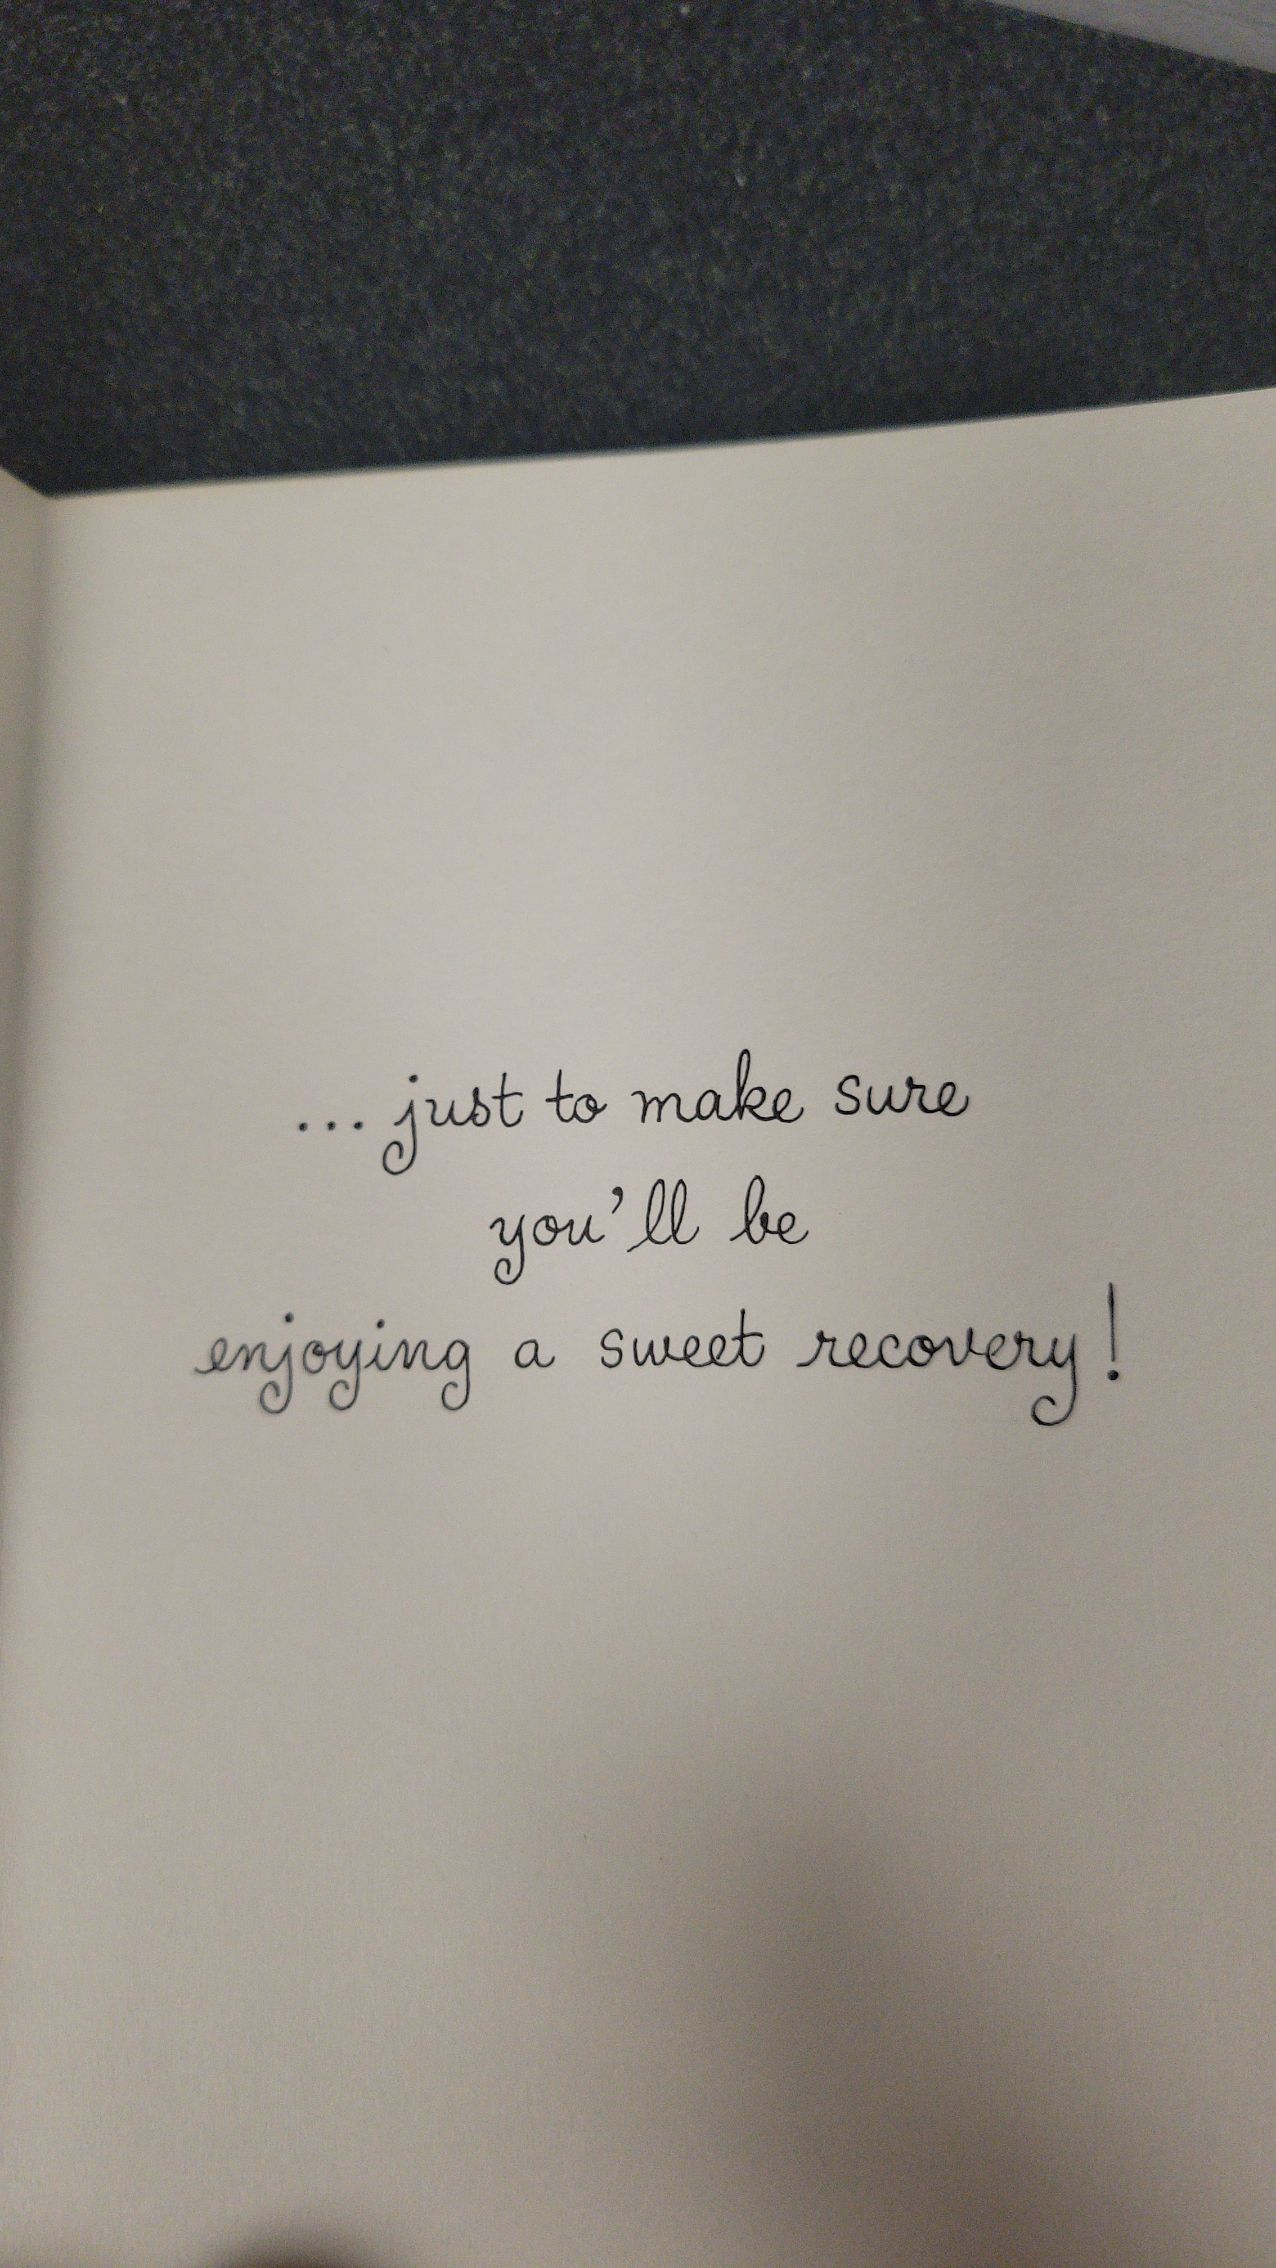 ... just to make sure
you'll be
enjoying a sweet recovery!